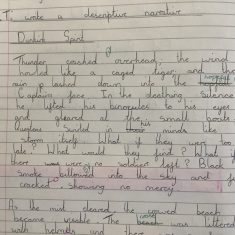 T: write a descriptive narrative
Dunkirk Spirit
Thunder crashed overhead, the wind
howled like a caged tiger and the
rain lashed down into the hopeful
Captains face. In the deathing silence
he lifted his binoculars to his eyes
and gleared at the small boats.
Questions swirled in their his minds like
a storm itself. What if they were too
late? What would they find? What if
there were no soldiers left? Black
smoke billowed into the sky and
cracked showing no mercy.
As the mist cleared, the crowed beach
became visible. The beach was littered
with helmets and